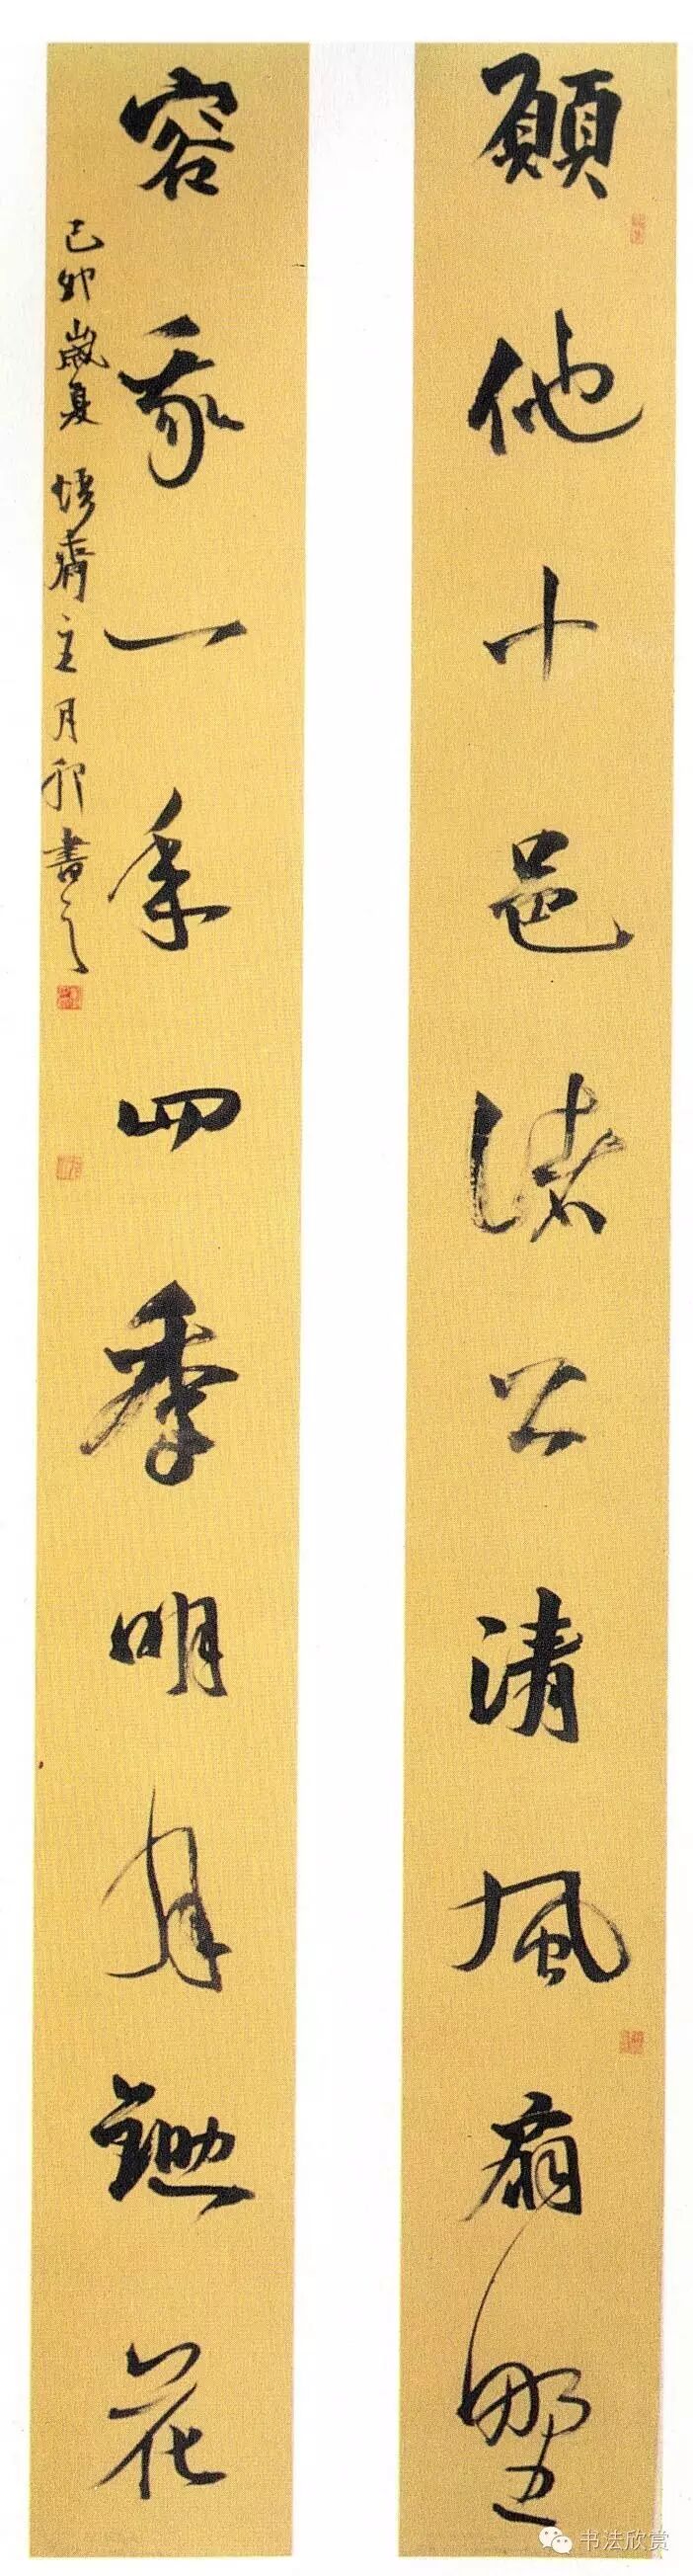 願他十邑諸公清風扇野
容我一年四季明月鋤花
己卯歲夏 悟齋主月卯書之
书法欣赏